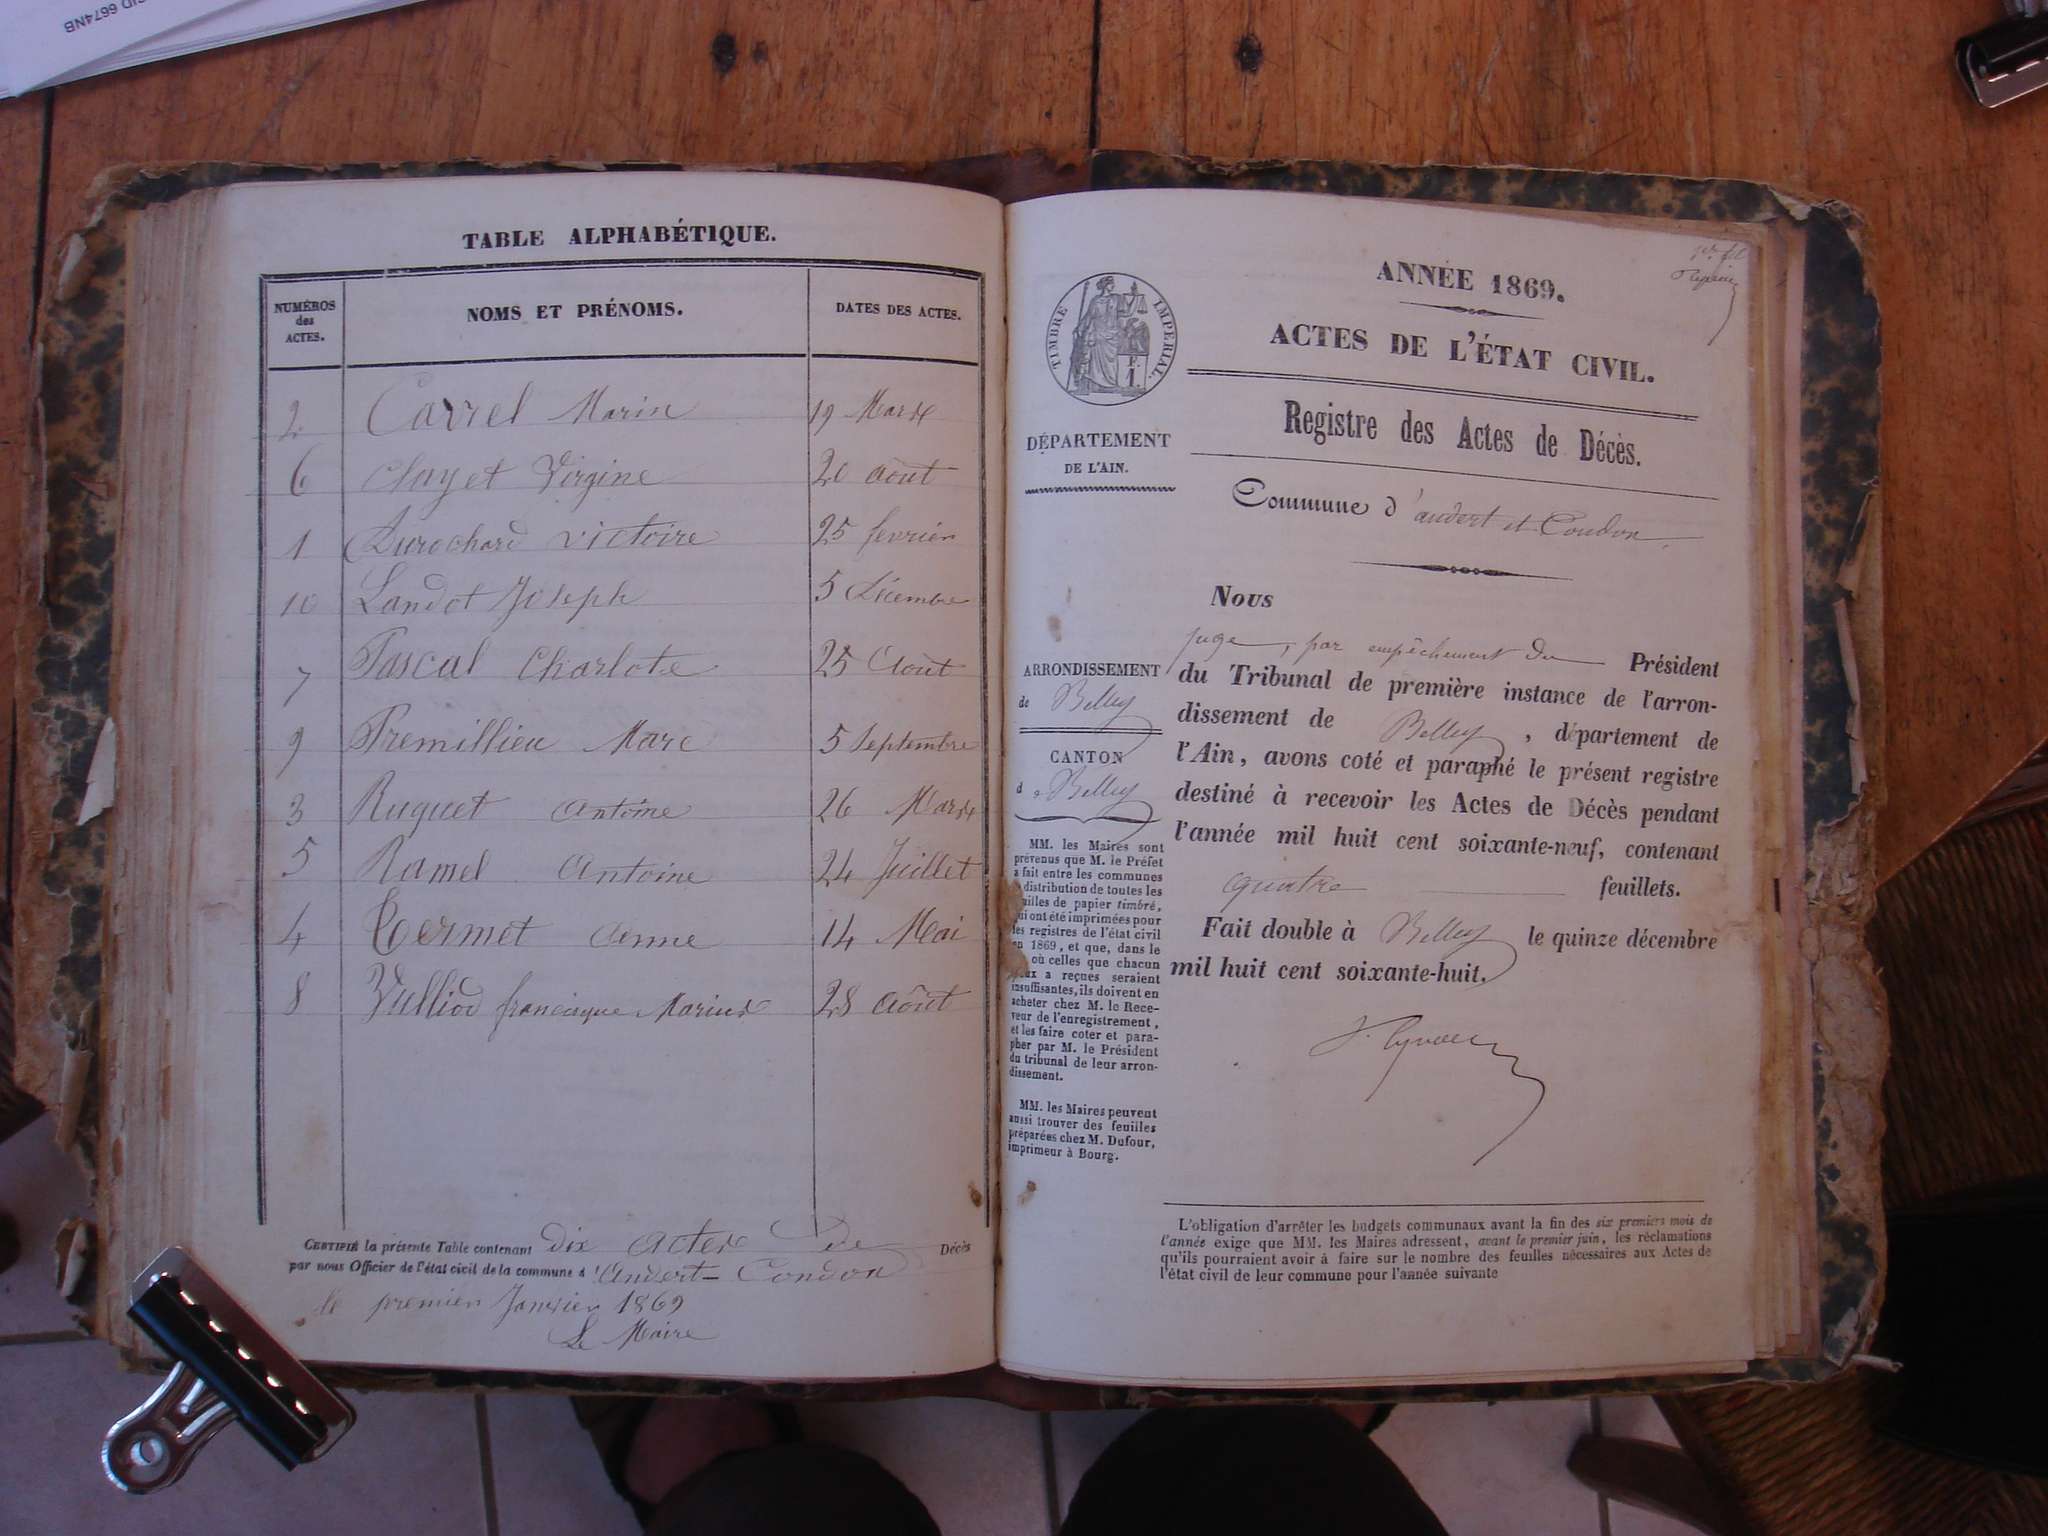 GID 6674NB
TABLE ALPHABÉTIQUE.
NUMÉROS des ACTES. NOMS ET PRÉNOMS. DATES DES ACTES.
2 Carrel Marin 19 Mars
6 Clayet Virgine 20 août
1 Durochard victoire 25 fevrier
10 Landot Joseph 5 Décembre
7 Pascal Charlote 25 Août
9 Premillieu Marc 5 Septembre
3 Ruguet Antoine 26 Mars
5 Ramel Antoine 24 Juillet
4 Termet Anne 14 Mai
8 Vulliod francisque Marius 28 Août
CERTIFIÉ la présente Table contenant dix actes de Décès
par nous Officier de l'état civil de la commune d'Andert-Condon
le premier Janvier 1869
Le Maire
ANNÉE 1869.
ACTES DE L'ÉTAT CIVIL.
TIMBRE IMPERIAL.
F. 1.
Registre des Actes de Décès.
DÉPARTEMENT
DE L'AIN.
Commune d'andert et Condon
Nous
juge, par empêchement du Président
du Tribunal de première instance de l'arron-
dissement de Belley, département de
l'Ain, avons coté et paraphé le présent registre
destiné à recevoir les Actes de Décès pendant
l'année mil huit cent soixante-neuf, contenant
quatre feuillets.
Fait double à Belley le quinze décembre
mil huit cent soixante-huit.
ARRONDISSEMENT
de Belley
CANTON
de Belley
MM. les Maires sont
prévenus que M. le Préfet
a fait entre les communes
distribution de toutes les
feuilles de papier timbré,
qui ont été imprimées pour
les registres de l'état civil
en 1869, et que, dans le
où celles que chacun
eux a reçues seraient
insuffisantes, ils doivent en
acheter chez M. le Rece-
veur de l'enregistrement,
et les faire coter et para-
pher par M. le Président
du tribunal de leur arron-
dissement.
MM. les Maires peuvent
aussi trouver des feuilles
préparées chez M. Dufour,
imprimeur à Bourg.
L'obligation d'arrêter les budgets communaux avant la fin des six premiers mois de
l'année exige que MM. les Maires adressent, avant le premier juin, les réclamations
qu'ils pourraient avoir à faire sur le nombre des feuilles nécessaires aux Actes de
l'état civil de leur commune pour l'année suivante